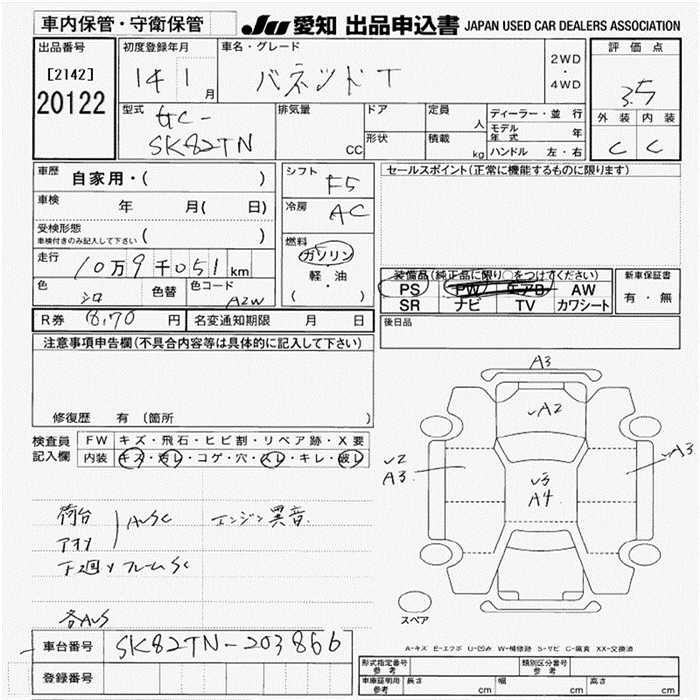 車内保管・守衛保管
JU 愛知 出品申込書 JAPAN USED CAR DEALERS ASSOCIATION
出品番号
[2142]
20122
初度登録年月
14 1 月
車名・グレード
バネットT
2WD
・
4WD
評価点
3.5
外装 内装
C C
型式
GC-
SK82TN
排気量
cc
ドア
形状
定員
人
積載
kg
ディーラー・並行
モデル年式 年
ハンドル 左・右
車歴 自家用・( )
車検 年 月( 日)
受検形態
車検付きのみ記入して下さい ( )
走行 10万9千051km
色 シロ 色替
色コード A2W
シフト F5
冷房 AC
燃料
ガソリン
軽・油
( )
セールスポイント(正常に機能するものに限ります)
装備品(純正品に限り○をつけてください)
PS PW エアB AW
SR ナビ TV カワシート
新車保証書
有・無
R券 8,70 円 名変通知期限 月 日
後日品
注意事項申告欄(不具合内容等は具体的に記入して下さい)
修復歴 有(箇所 )
検査員
記入欄
FW キズ・飛石・ヒビ割・リペア跡・X要
内装 キズ・汚レ・コゲ・穴・スレ・キレ・破レ
荷台
アオリ
AUSC
エンジン異音
下廻りフレームSC
各AUS
A3
A2
U2
A3
U3
A4
A3
スペア
A-キズ E-エクボ U-凹み W-補修跡 S-サビ C-腐食 XX-交換済
車台番号 SK82TN-203866
登録番号
形式指定番号
参考
類別区分番号
参考
車庫証明用
参考
長さ cm
幅 cm
高さ cm